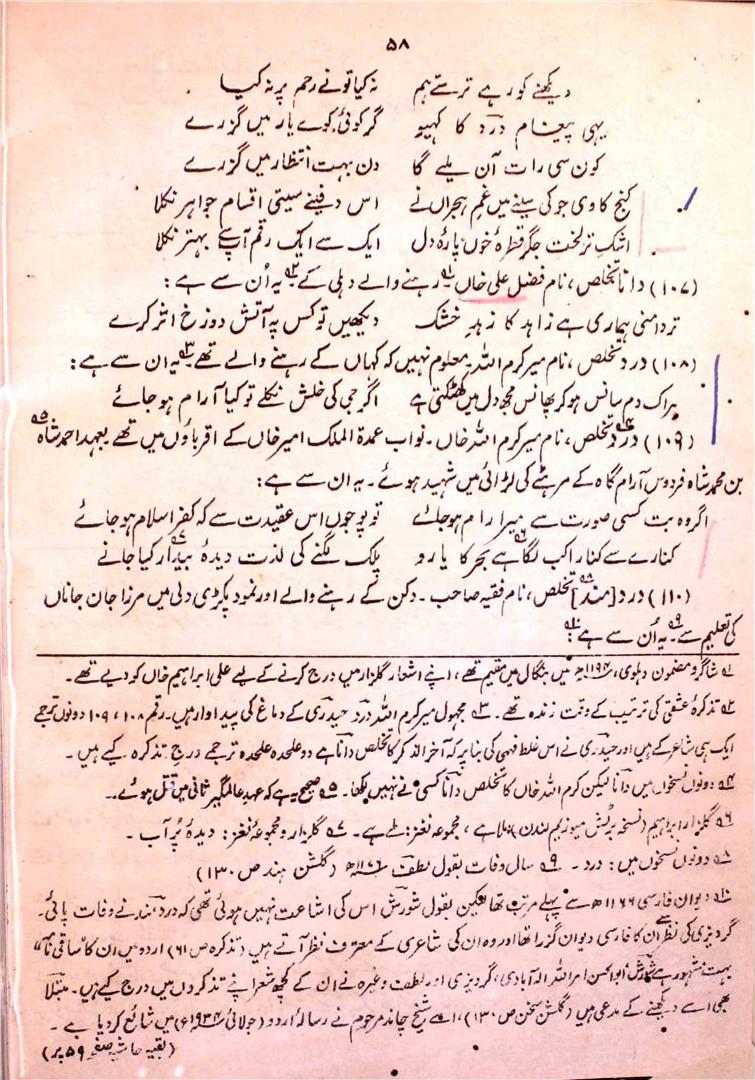 ۵۸
دیکھنے کو رہے ترستے ہم نہ کیا تو نے رحم پر نہ کیا
یہی پیغام درد کا کہیو گر کوئی کوے یار میں گزرے
کون سی رات آن ملیے گا دن بہت انتظار میں گزرے
کنج کاوی جو کی سینے میں غم ہجراں نے اس دفینے سیتی اقسام جواہر نکلا
اشک تر لخت جگر قطرۂ خوں پارۂ دل ایک سے ایک رقم آپ سے بہتر نکلا
(۱۰۷) دانا تخلص، نام فضل علی خاں ۱؎ رہنے والے دہلی کے ۲؎ یہ اُن سے ہے:
تر دامنی ہماری ہے زاہد کا زہد خشک دیکھیں تو کس پہ آتش دوزخ اثر کرے
(۱۰۸) درد تخلص، نام میر کرم اللہ۔ معلوم نہیں کہ کہاں کے رہنے والے تھے ۳؎ یہ ان سے ہے:
ہر اک دم سانس ہو کر پھانس مجھ دل میں کھٹکتی ہے اگر جی کی خلش نکلے تو کیا آرام ہو جائے
(۱۰۹) درد ۴؎ تخلص، نام میر کرم اللہ خاں۔ نواب عمدۃ الملک امیر خاں کے اقرباؤں میں تھے بعہد احمد شاہ ۵؎
بن محمد شاہ فردوس آرام گاہ کے مرہٹے کی لڑائی میں شہید ہوئے۔ یہ ان سے ہے:
اگر وہ بت کسی صورت سے میرا رام ہو جائے تو پوجوں اس عقیدت سے کہ کفر اسلام ہو جائے
کنارے سے کنارا کب لگا ۶؎ ہے بحر کا یارو پلک لگنے کی لذت دیدۂ بیدار ۷؎ کیا جانے
(۱۱۰) درد [مند] ۸؎ تخلص، نام فقیہ صاحب۔ دکن کے رہنے والے اور نمود پکڑی دلی میں مرزا جان جاناں
کی تعلیم سے ۹؎۔ یہ اُن سے ہے ۱۰؎:
۱؎ شاگرد مضمون دہلوی، ۱۱۹۴ھ میں بنگال میں مقیم تھے، اپنے اشعار گلزار میں درج کرنے کے لیے علی ابراہیم خاں کو دیے تھے۔
۲؎ تذکرۂ عشقی کی ترتیب کے وقت زندہ تھے۔ ۳؎ مجہول میر کرم اللہ درد حیدری کے دماغ کی پیداوار ہیں۔ رقم ۱۰۸، ۱۰۹ دونوں ترجمے
ایک ہی شاعر کے ہیں اور حیدری نے اس غلط فہمی کی بنا پر کہ آخر الذکر کا تخلص دانا ہے دو علحدہ علحدہ ترجمے درج تذکرہ کیے ہیں۔
۴؎ دونوں نسخوں میں دانا لیکن کرم اللہ خاں کا تخلص دانا کسی نے نہیں لکھا۔ ۵؎ صحیح یہ ہے کہ عہد عالمگیر ثانی میں قتل ہوئے۔
۶؎ گلزار ابراہیم (نسخہ برٹش میوزیم لندن): ملا ہے، مجموعہ نغز: ملے ہے۔ ۷؎ گلزار و مجموعۂ نغز: دیدۂ پُر آب۔
۸؎ دونوں نسخوں میں: درد۔ ۹؎ سال وفات بقول لطف ۱۱۷۶ھ (گلشن ہند ص ۱۳۰)
۱۰؎ دیوان فارسی ۱۱۶۶ھ سے پہلے مرتب تھا لیکن بقول شورش اس کی اشاعت نہیں ہوئی تھی کہ دردمند نے وفات پائی۔
گردیزی کی نظر سے اُن کا فارسی دیوان گزرا تھا اور وہ ان کی شاعری کے معترف نظر آتے ہیں (تذکرہ ص ۶۱) اردو میں ان کا "ساقی نامہ"
بہت مشہور ہے شورش، ابو الحسن امر اللہ الہ آبادی، گردیزی اور لطف وغیرہ نے ان کے کچھ شعر اپنے تذکروں میں درج کیے ہیں۔ مبتلا
بھی اسے دیکھنے کے مدعی ہیں (گلشن سخن ص ۱۳۰)، اسے شیخ چاند مرحوم نے رسالہ اردو (جولائی ۱۹۳۴ء) میں شائع کر دیا ہے۔
(بقیہ حاشیہ صفحہ ۵۹ پر)